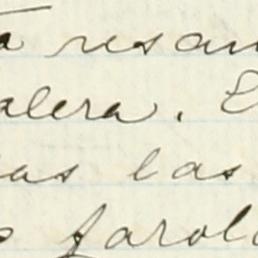 a resan
alera. E
as las
s farol